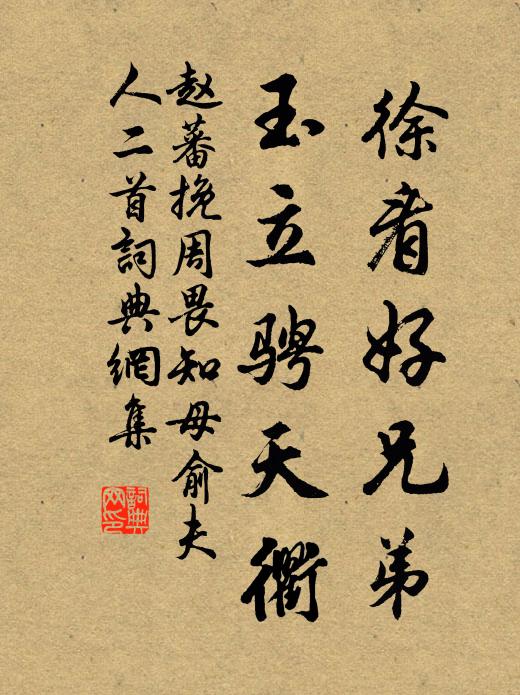 徐看好兄弟
玉立骋天衢
赵蕃挽周畏知母俞夫
人二首詞典網集
詞典網印